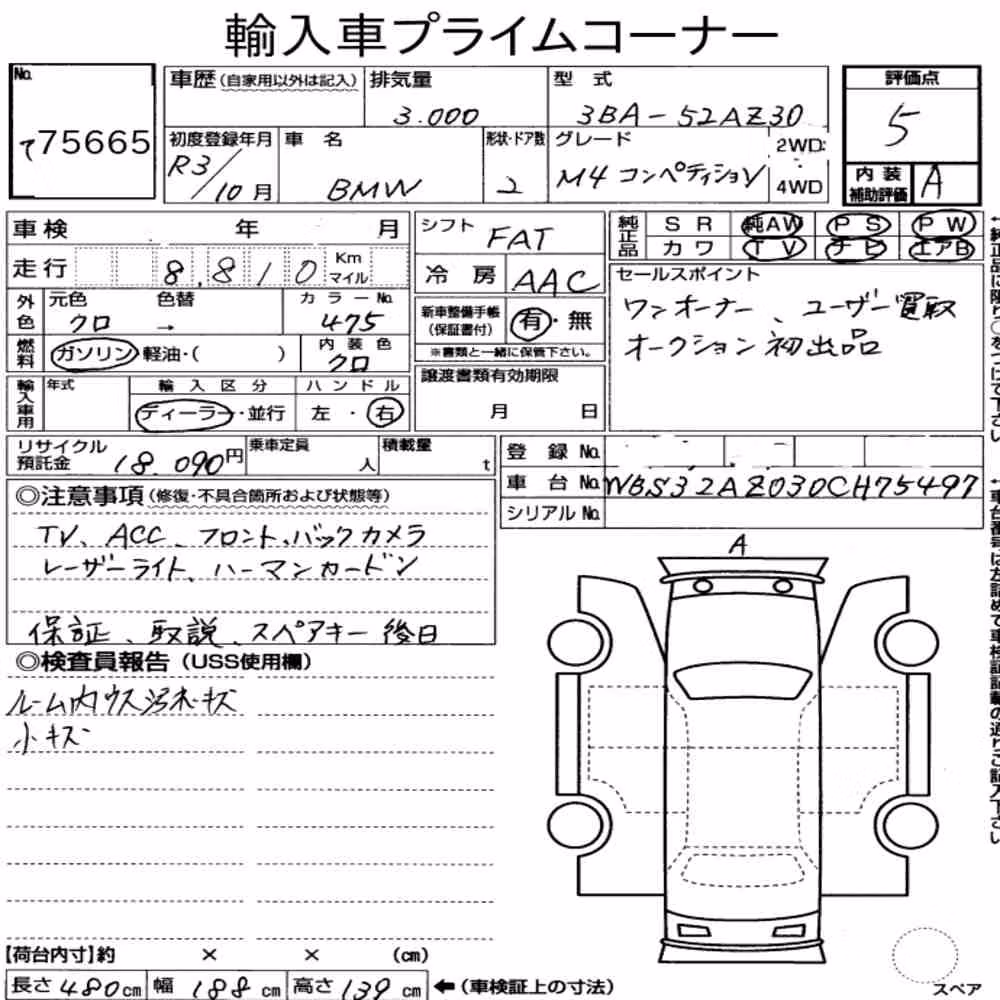 輸入車プライムコーナー
No. て75665
車歴(自家用以外は記入) 排気量 3.000 型式 3BA-52AZ30
初度登録年月 R3/10月 車名 BMW 形状・ドア数 2 グレード M4 コンペティション 2WD: 4WD
評価点 5
内装補助評価 A
車検 年 月
走行 8,810 Km マイル
外色 元色 クロ 色替 → カラーNo. 475
燃料 ガソリン・軽油・( ) 内装色 クロ
輸入車用 年式 輸入区分 ディーラー・並行 ハンドル 左・右
シフト FAT
冷房 AAC
新車整備手帳(保証書付) 有・無
※書類と一緒に保管下さい。
譲渡書類有効期限 月 日
純正品 SR 純AW PS PW
カワ TV ナビ エアB
セールスポイント
ワンオーナー、ユーザー買取
オークション初出品
←純正品に限り○をつけて下さい
リサイクル預託金 18.090円 乗車定員 人 積載量 t
登録No.
車台No. WBS32AZ030CH75497
シリアルNo.
←車台番号は左詰めで車検証記載の通りご記入下さい
◎注意事項(修復・不具合箇所および状態等)
TV、ACC、フロント、バックカメラ
レーザーライト、ハーマンカードン
保証、取説、スペアキー後日
◎検査員報告(USS使用欄)
ルーム内ウス汚れ・キズ
小キズ
A
スペア
【荷台内寸】約 × × (cm)
長さ480cm 幅188cm 高さ139cm ←(車検証上の寸法)